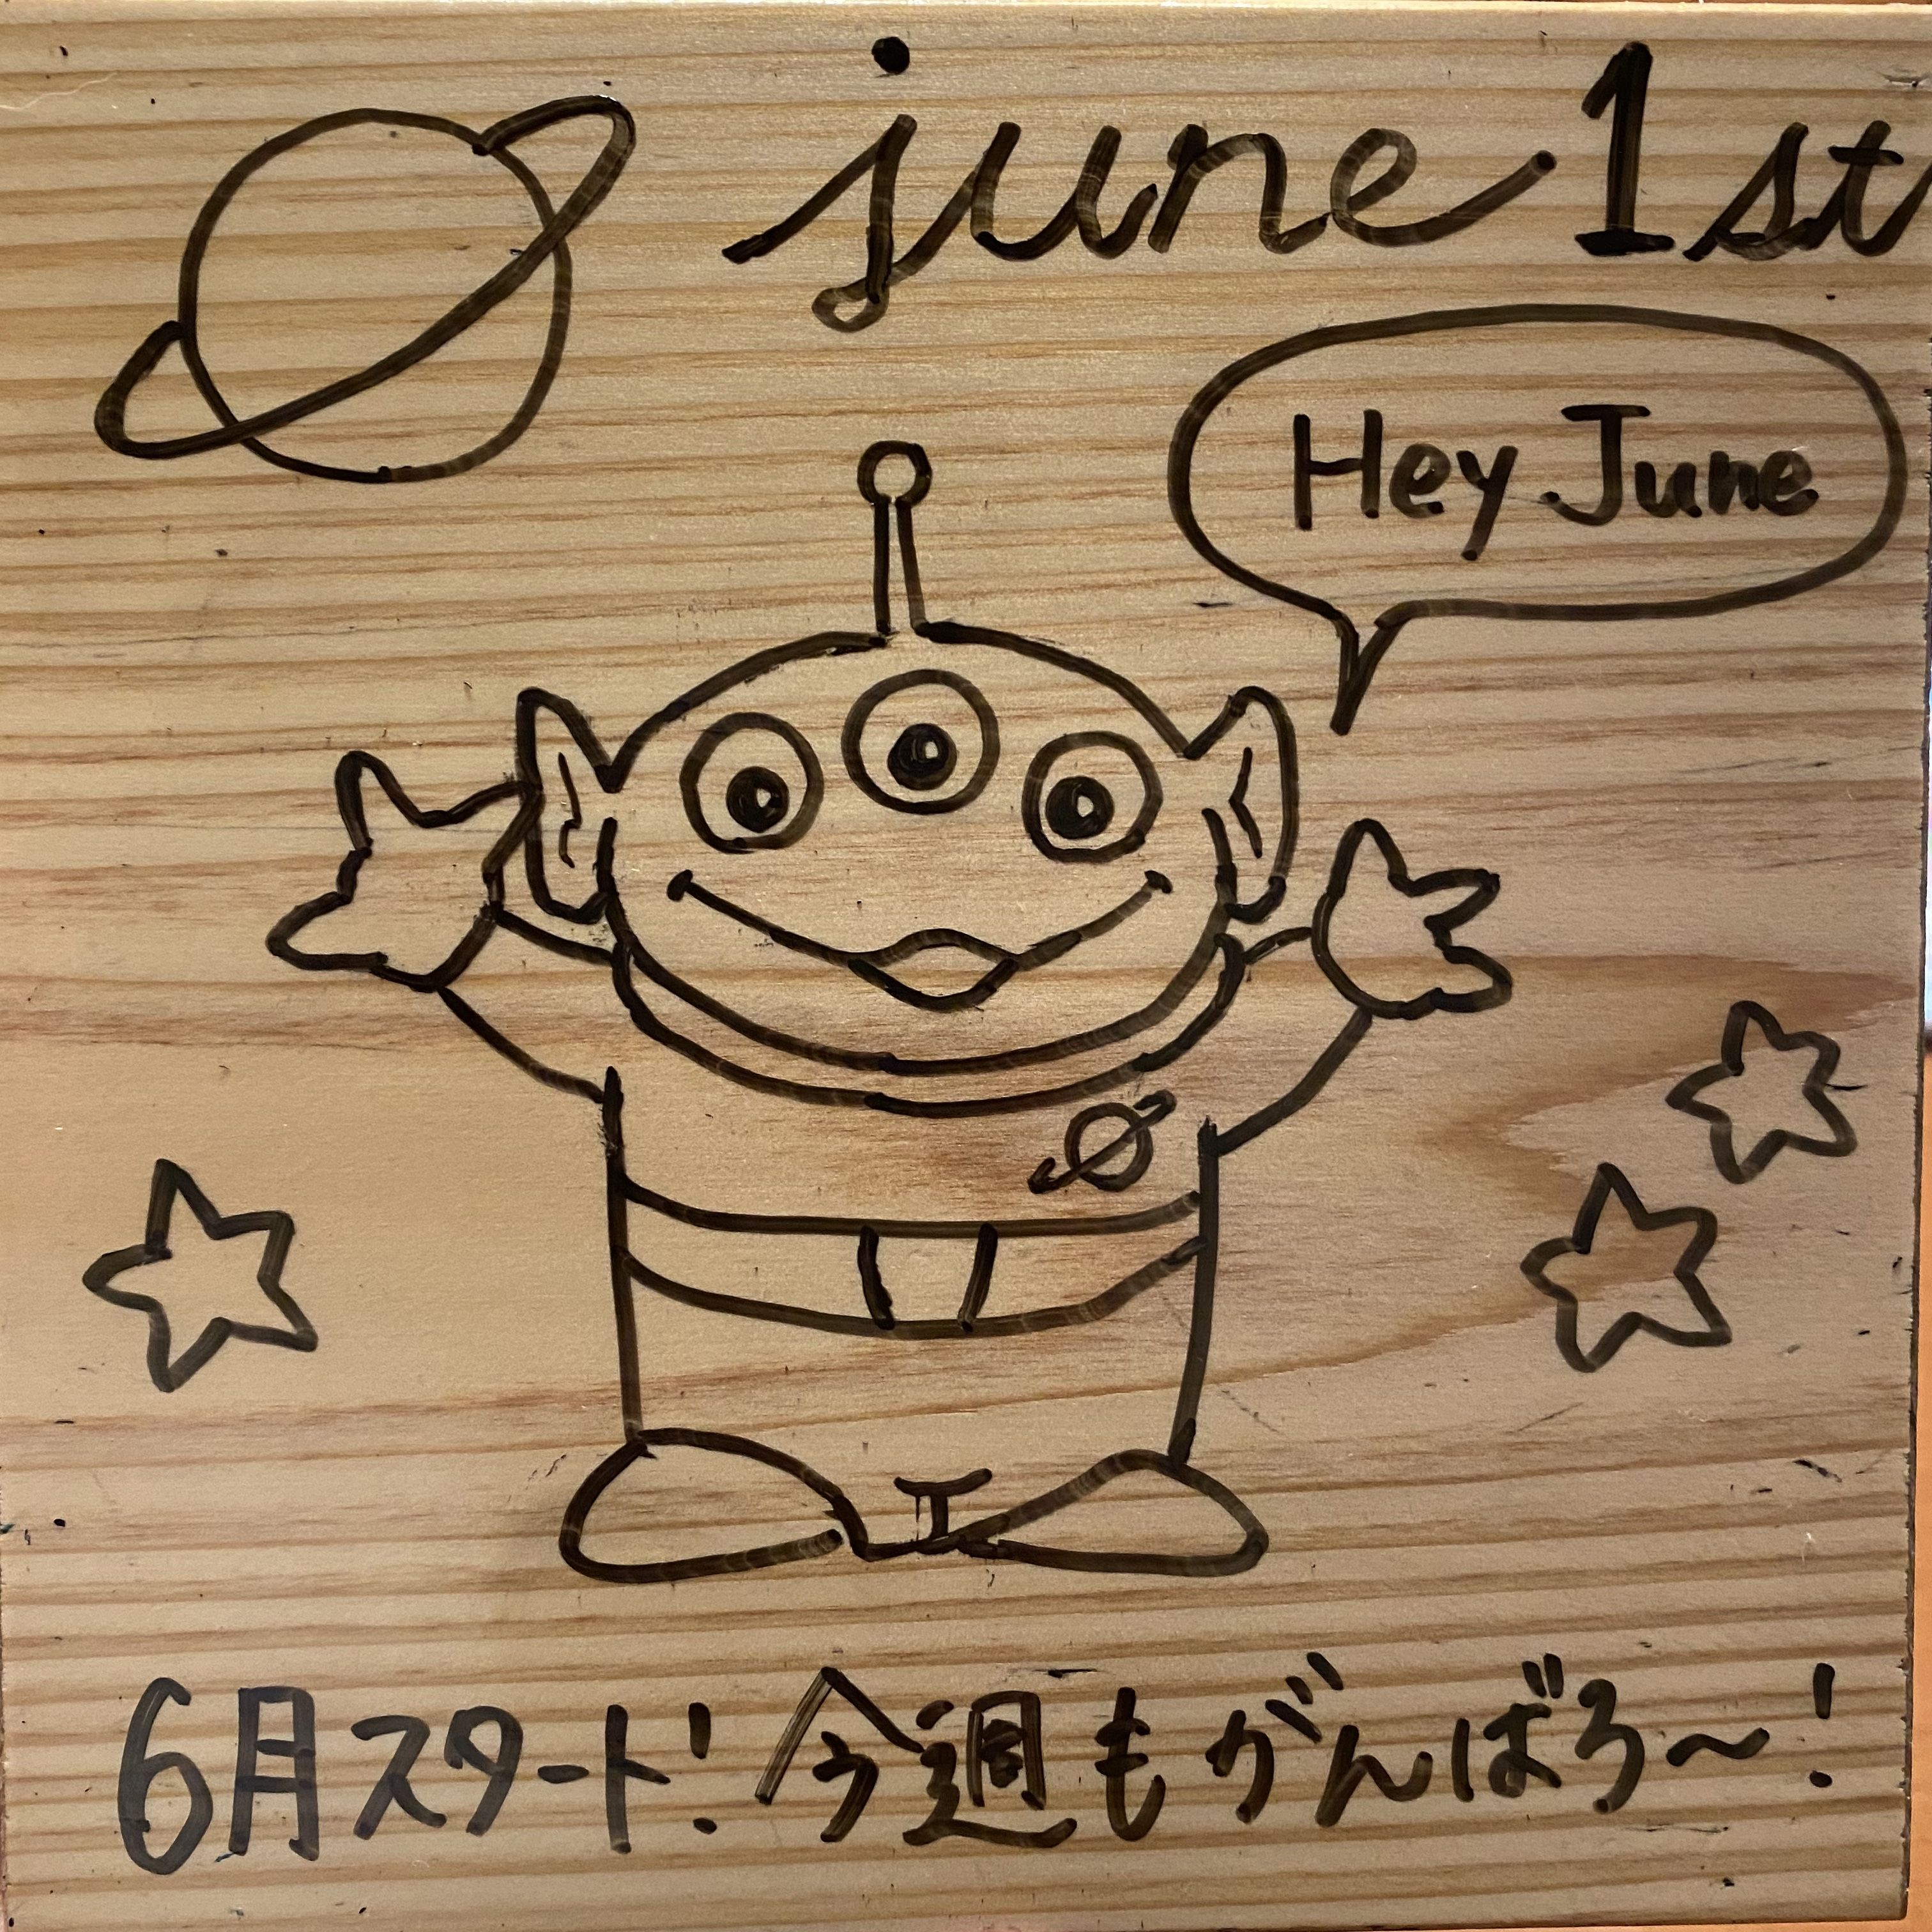 june 1st
Hey June
6月スタート! 今週もがんばろ〜!